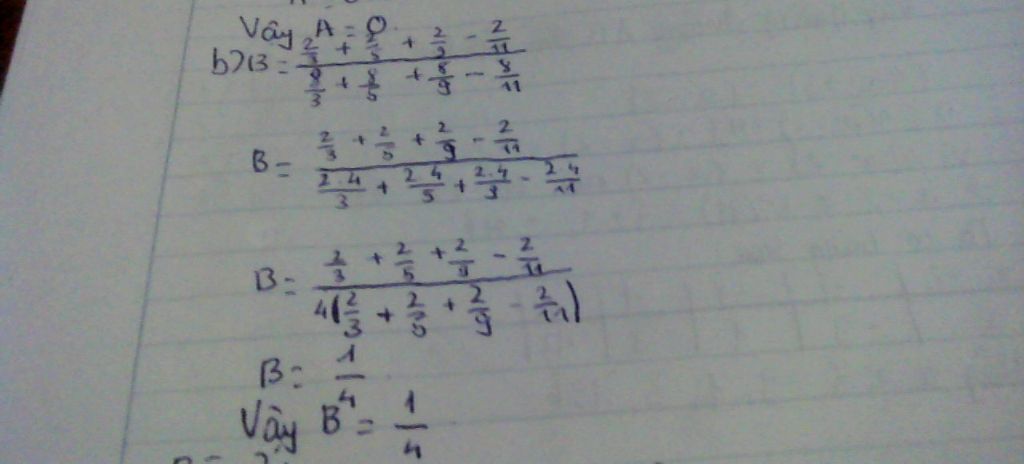 Vây A = 0
b) B = \frac{\frac{2}{3} + \frac{2}{5} + \frac{2}{9} - \frac{2}{11}}{\frac{8}{3} + \frac{8}{5} + \frac{8}{9} - \frac{8}{11}}
B = \frac{\frac{2}{3} + \frac{2}{5} + \frac{2}{9} - \frac{2}{11}}{\frac{2.4}{3} + \frac{2.4}{5} + \frac{2.4}{9} - \frac{2.4}{11}}
B = \frac{\frac{2}{3} + \frac{2}{5} + \frac{2}{9} - \frac{2}{11}}{4(\frac{2}{3} + \frac{2}{5} + \frac{2}{9} - \frac{2}{11})}
B = \frac{1}{4}
Vây B = \frac{1}{4}